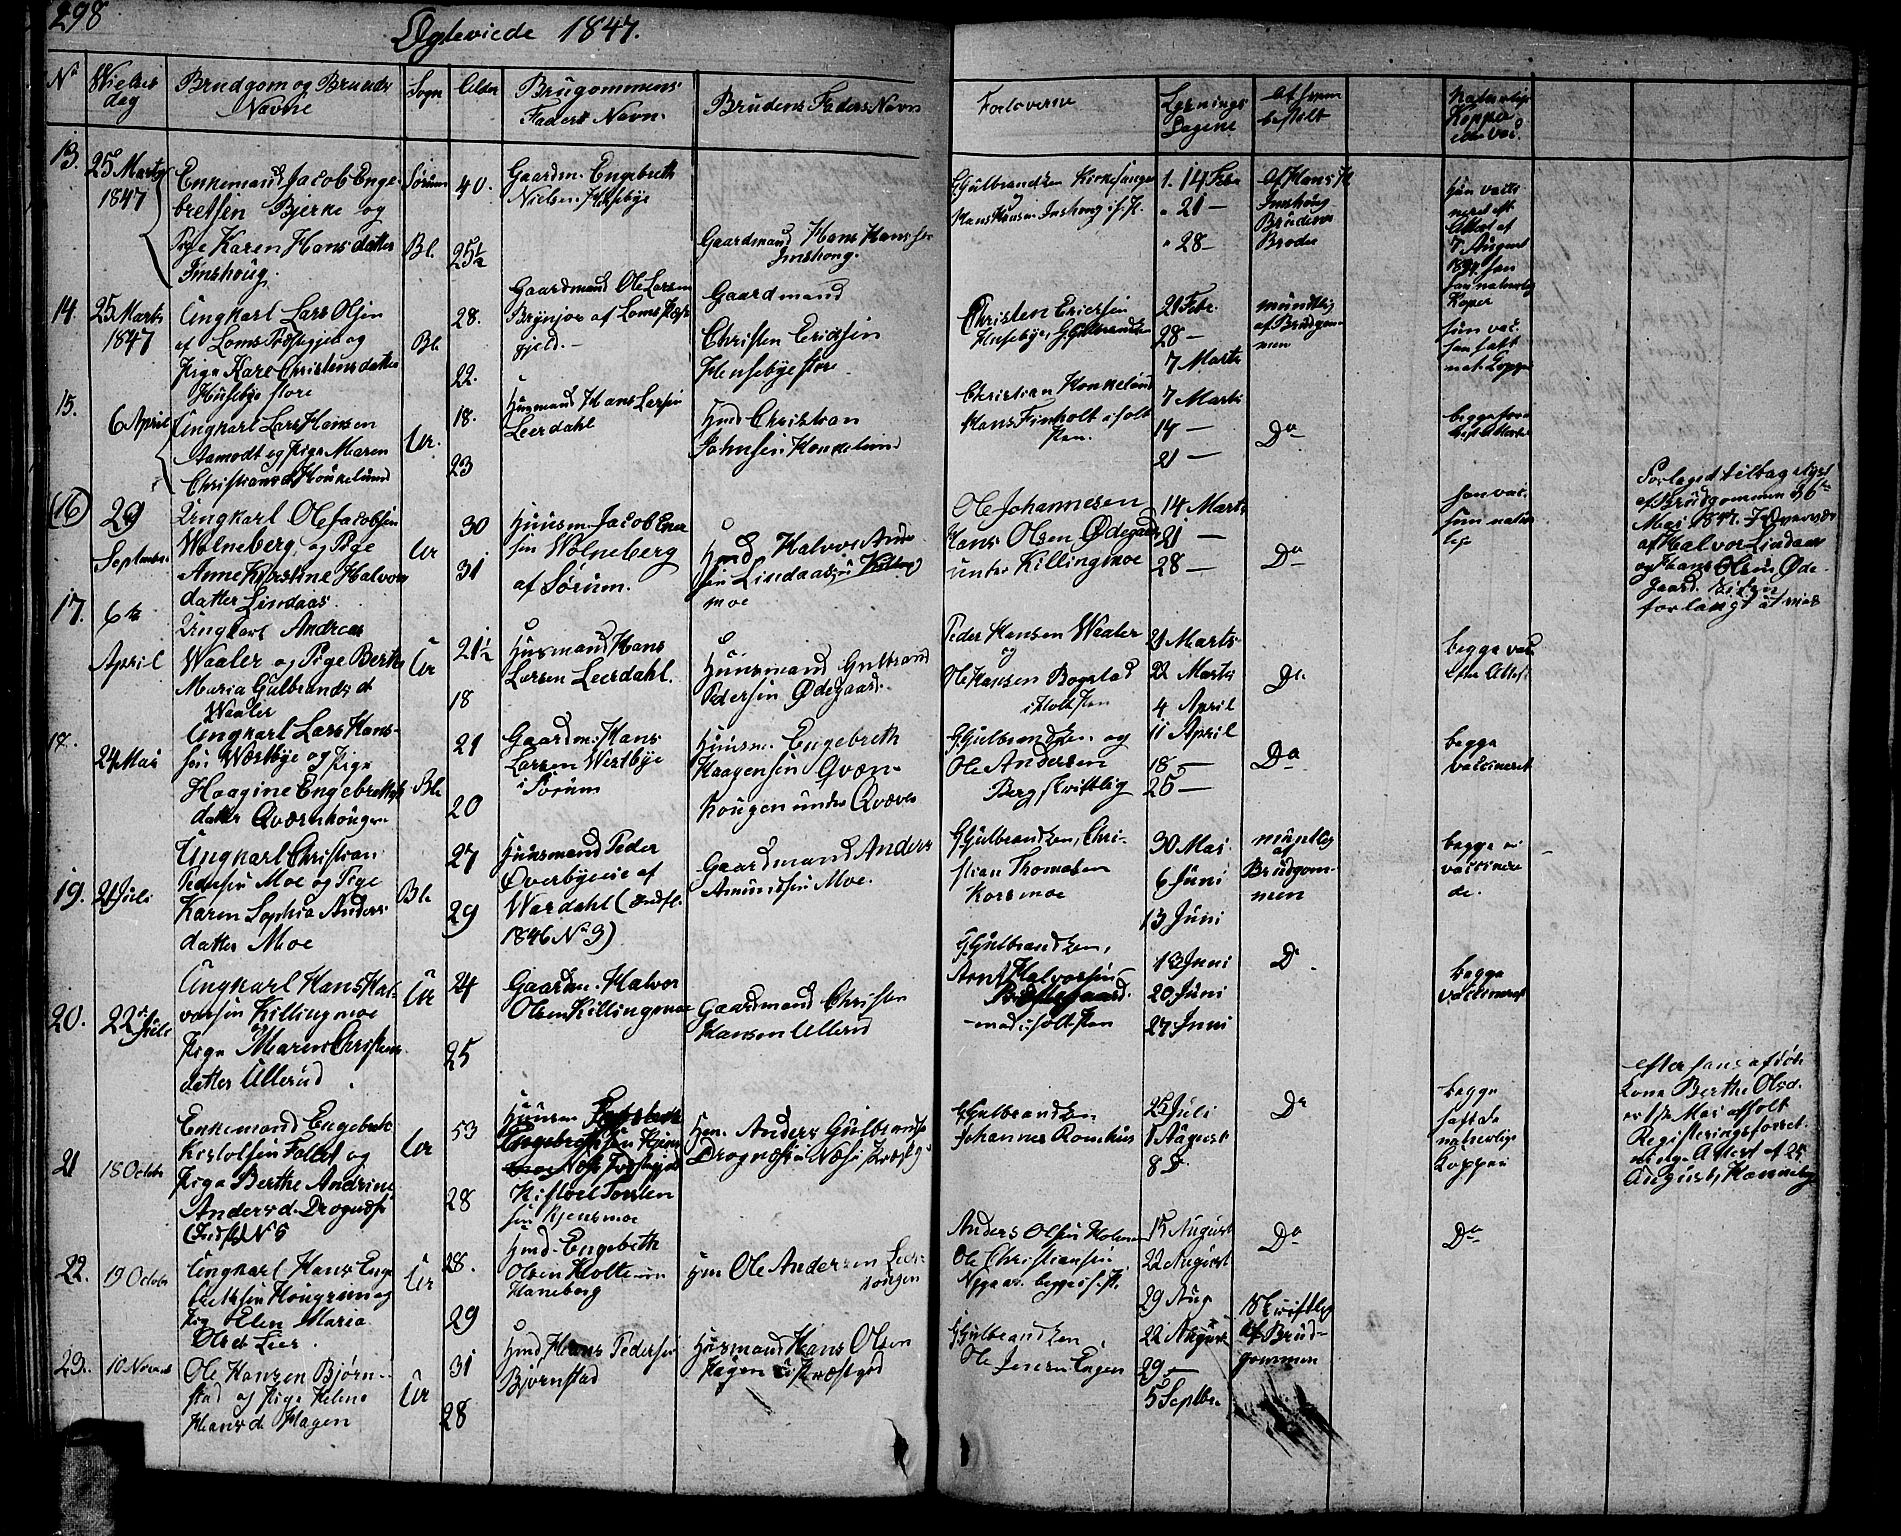 298
Ægteviede 1847.
No
Vielses dag
Brudgom og Bruds Navne
Sogn
Alder
Brugommens Faders Navn.
Brudens Faders Navn
Forloverne
Lysnings Dagene
Af hvem bestilt
Naturlige Kopper eller vac.
13.
25 Marts 1847
Enkemand Jacob Enge
bretsen Bjerke og
Pige Karen Hansdatter
Imshoug.
Sørum
Bl.
40.
25½
Gaardm. Engebreth
Nielsen Huseby
Gaardmand Hans Hanssen
Imshoug.
G Gulbrandsen Kirkesanger
1. 14 Febr
" 21 —
" 28 —
Af Hans H
Imshoug
Brudens
Broder
hun vacci
neret eft
Attest af
7 August
han naturlig
Koper
14
25 Marts
1847
Ungkarl Lars Olsen
af Loms Præstegjeld og
Pige Kari Christensdatter
Huseby store
Bl
28.
22.
Gaardmand Ole Larsen
af Loms Præste
gjeld. —
Gaardmand
Christen Ericksen
Husebye store
Christen Ericksen
Husebye, G Gulbrandsen
21 Febr.
28 —
7 Marts
mundtlig
af Brudgom
men
hun vac.
han haft
nat. Kopper
15.
6 April
Ungkarl Lars Hansen
Aamodt og Pige Maren
Christiansd Honkelund
Ur.
18.
23
Husmand Hans Larsen
Leerdahl
Hmd Christian
Johnsen Honkelund
Christian Honkelund
Hans Finholt
7 Marts
14 —
21 —
Do
begge
(16)
29
September
Ungkarl Ole Jacobsen
Wolneberg og Pige
Anne Kirstine Halvors
datter Lindaas.
Ur
30
31
Huusm. Jacob
sen Wolneberg
af Sørum.
Hmd Halvor Ande
sen Lindaas
moe
Ole Johannesen
Hans Olsen Ødegaard
under Killingmoe
14 Marts
21 —
28 —
Do
han vac.
hun natur
lige
Forlaget tilbagelyst
af Brudgommen
Mai 1847. I Overvær
af Halvor Lindaas
og Hans Olsen Øde-
gaard. Siden
forlangt at vies
17.
6te
April
Ungkarl Andreas
Waaler og Pige Berthe
Maria Gulbrandsd
Waaler
Ur
21½
18
Husmand Hans
Larsen Leerdahl.
Huusmand Gulbrand
Pedersen Ødegaard.
Peder Hansen Waaler
og
Ole Hansen Bogstad
i Holtsten
21 Marts
22 Marts
4 April
Do
begge vac.
efter Attest
18.
24 Mai
Ungkarl Lars Hans-
sen Westbye og Pige
Haagine Engebrets
datter Qværnhougen
Bl
21
20
Gaardm. Hans
Larsen Westbye
i Sørum
Huusm. Engebreth
Haagensen Qværn-
hougen under Qvæves
G Gulbrandsen og
Ole Andersen
Berg skriftlig
11 April
18 —
25 —
Do
begge
vaccineret
19.
21 Juli
Ungkarl Christian
Pedersen Moe og Pige
Karen Sophia Anders
datter Moe
Bl
27
29
Huusmand Peder
Overbyeeie af
Wardahl (Indfl.
1846 No 9)
Gaardmand Anders
Amundsen Moe.
G Gulbrandsen, Chri-
stian Thomasen
Korsmoe
30 Mai
6 Juni
13 Juni
mundtlig
af
Brudgom-
men
begge
vaccinere
de.
20.
22 Juli
Ungkarl Hans Hal-
vorsen Killingmoe
Pige Maren Christens
datter Ullerud
Ur
24
25
Gaardm. Halvor
Olsen Killingmoe
Gaardmand Christen
Hansen Ullerud
G Gulbrandsen,
Arnt Halvorsen
Præstegaard.
13 Juni
20 Juni
27 Juni
D
begge
vaccineret
21
18 Octobr
Enkemand Engebreth
Kistolsen Follet og
Pige Berthe Andrine
Andersd. Drognæs
Indfl N 8
Ur
53
28
Huusm
Kistoel Torsten
sen Kjensmoe
Hm. Anders Gulbrands
Drognæs i Næs Præstg
G Gulbrandsen
Johannes Romhus
25 Juli
1 August
8 D.
Do
begge
hafde
naturlige
Kopper
efter hans afdøde
Kone Berthe Olsd.
er
Registeringsforret-
ninge Attest af 25
August,
22.
19 Octobr
Ungkarl Hans Enge
bretsen Hougruen og
Pige Elen Maria
Olsd Leer.
Ur
28.
29
Hmd. Engebreth
Olsen Holteun
Haneborg
Hm Ole Andersen Leer-
Anders Olsen Holme
Ole Christiansen
15 August
22 August
29 Aug
Do
Do
23.
10 Novemb
Ole Hansen Bjørn-
stad og Pige Helene
Hansd Hagen
Ur
31
28
Hmd. Hans Pedersen
Bjørnstad
Husmand Hans Olsen
Hagen i Præstgjd
G Gulbrandsen,
Ole Jensen Engen
22 August
29 —
5 Septbr
Skriftlig
af Brud-
gommen